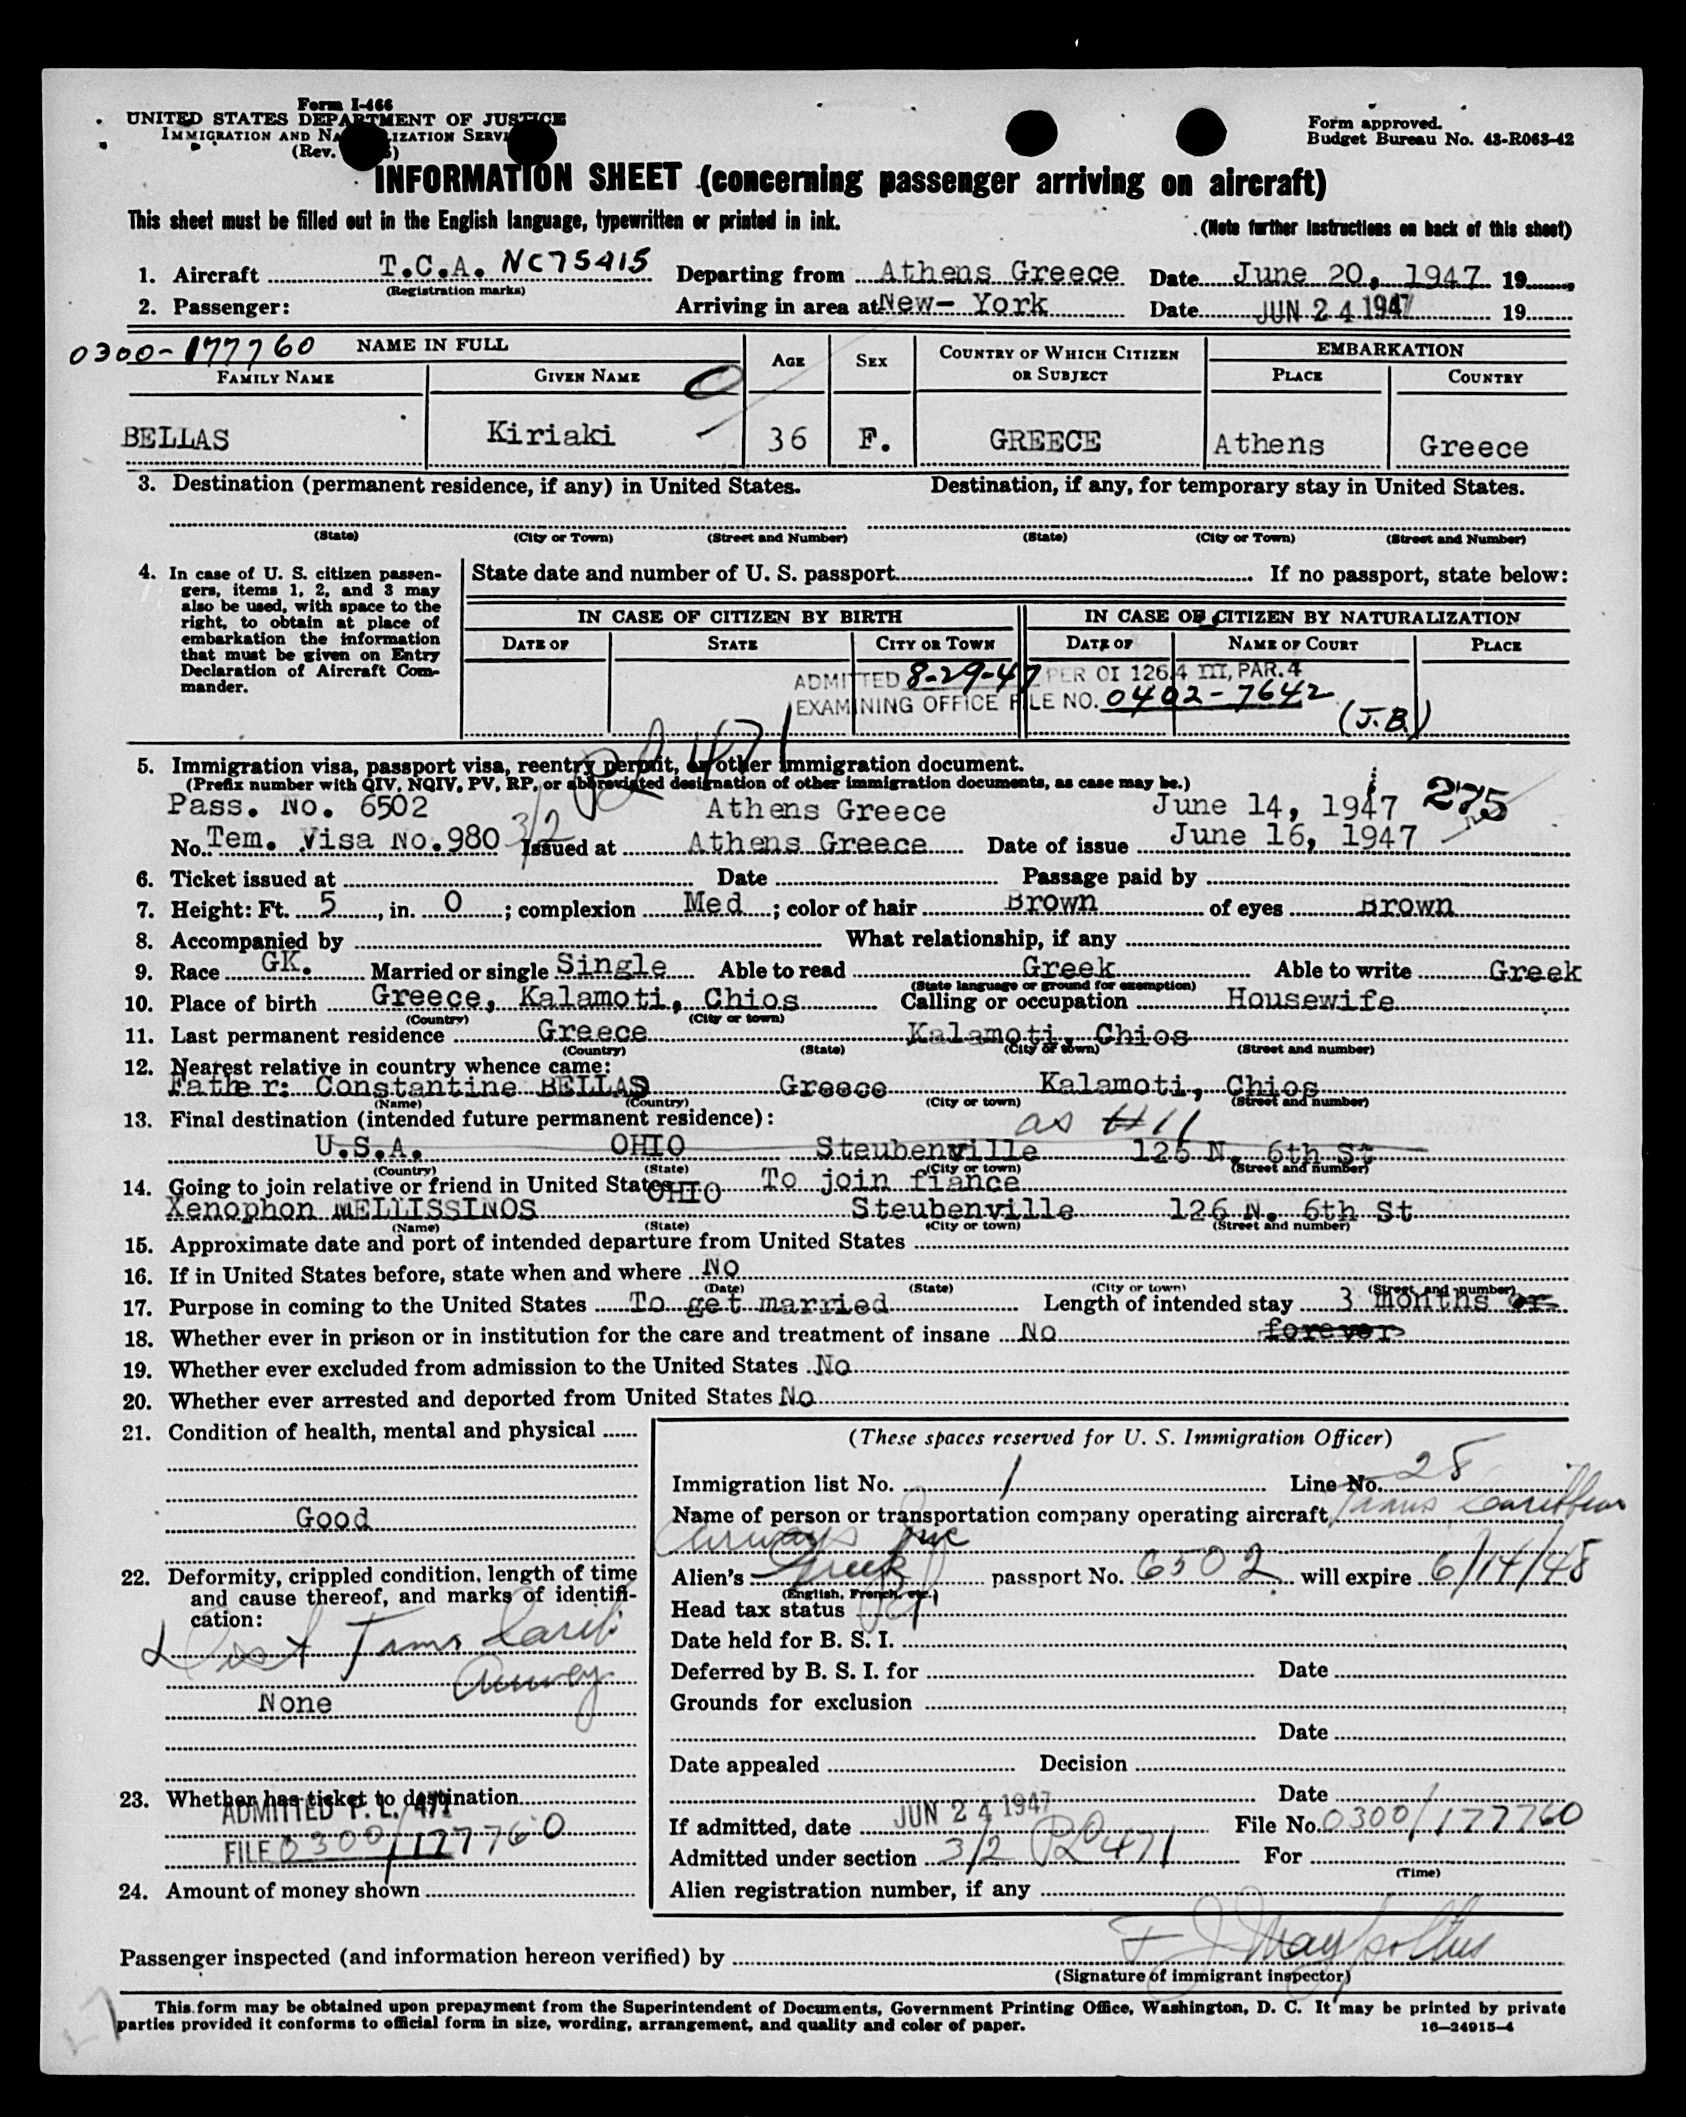 Form I-466
UNITED STATES DEPARTMENT OF JUSTICE
IMMIGRATION AND NATURALIZATION SERVICE
(Rev.
Form approved.
Budget Bureau No. 43-R063-42
INFORMATION SHEET (concerning passenger arriving on aircraft)
This sheet must be filled out in the English language, typewritten or printed in ink.
(Note further instructions on back of this sheet)
1. Aircraft T.C.A. NC75415 Departing from Athens Greece Date June 20, 1947 19
(Registration marks)
2. Passenger: Arriving in area at New- York Date JUN 24 1947 19
0300-177760 NAME IN FULL AGE SEX COUNTRY OF WHICH CITIZEN OR SUBJECT EMBARKATION
FAMILY NAME GIVEN NAME PLACE COUNTRY
BELLAS Kiriaki 36 F. GREECE Athens Greece
3. Destination (permanent residence, if any) in United States. Destination, if any, for temporary stay in United States.
(State) (City or Town) (Street and Number) (State) (City or Town) (Street and Number)
4. In case of U. S. citizen passen-
gers, items 1, 2, and 3 may
also be used, with space to the
right, to obtain at place of
embarkation the information
that must be given on Entry
Declaration of Aircraft Com-
mander.
State date and number of U. S. passport If no passport, state below:
IN CASE OF CITIZEN BY BIRTH IN CASE OF CITIZEN BY NATURALIZATION
DATE OF STATE CITY OR TOWN DATE OF NAME OF COURT PLACE
ADMITTED 8-29-47 PER OI 126.4 III, PAR.4
EXAMINING OFFICE FILE NO. 0402-7642
(J.B.)
PL 471
5. Immigration visa, passport visa, reentry permit, or other immigration document.
(Prefix number with QIV, NQIV, PV, RP, or abbreviated designation of other immigration documents, as case may be.)
Pass. No. 6502 Athens Greece June 14, 1947 275
No. Tem. Visa No. 980 3/2 Issued at Athens Greece Date of issue June 16, 1947
6. Ticket issued at Date Passage paid by
7. Height: Ft. 5, in. 0; complexion Med; color of hair Brown of eyes Brown
8. Accompanied by What relationship, if any
9. Race GK. Married or single Single Able to read Greek Able to write Greek
(State language or ground for exemption)
10. Place of birth Greece, Kalamoti, Chios Calling or occupation Housewife
(Country) (City or town)
11. Last permanent residence Greece Kalamoti, Chios
(Country) (State) (City or town) (Street and number)
12. Nearest relative in country whence came:
Father: Constantine BELLAS Greece Kalamoti, Chios
(Name) (Country) (City or town) (Street and number)
13. Final destination (intended future permanent residence): as #11
U.S.A. OHIO Steubenville 126 N. 6th St
(Country) (State) (City or town) (Street and number)
14. Going to join relative or friend in United States OHIO To join fiance
Xenophon MELLISSINOS Steubenville 126 N. 6th St
(Name) (State) (City or town) (Street and number)
15. Approximate date and port of intended departure from United States
16. If in United States before, state when and where No
(Date) (State) (City or town) (Street and number)
17. Purpose in coming to the United States To get married Length of intended stay 3 months or
18. Whether ever in prison or in institution for the care and treatment of insane No forever
19. Whether ever excluded from admission to the United States No
20. Whether ever arrested and deported from United States No
21. Condition of health, mental and physical
Good
22. Deformity, crippled condition, length of time
and cause thereof, and marks of identifi-
cation:
None
23. Whether has ticket to destination
ADMITTED P. L. 471
FILE 0300/177760
24. Amount of money shown
(These spaces reserved for U. S. Immigration Officer)
Immigration list No. 1 Line No. 28
Name of person or transportation company operating aircraft Trans Caribbean
Airways Inc
Alien's Greek passport No. 6502 will expire 6/14/48
(English, French, etc.)
Head tax status
Date held for B. S. I.
Deferred by B. S. I. for Date
Grounds for exclusion
Date
Date appealed Decision
Date
If admitted, date JUN 24 1947 File No. 0300/177760
Admitted under section 3/2 PL 471 For
(Time)
Alien registration number, if any
Passenger inspected (and information hereon verified) by
(Signature of immigrant inspector)
This form may be obtained upon prepayment from the Superintendent of Documents, Government Printing Office, Washington, D. C. It may be printed by private
parties provided it conforms to official form in size, wording, arrangement, and quality and color of paper.
16—24915-4